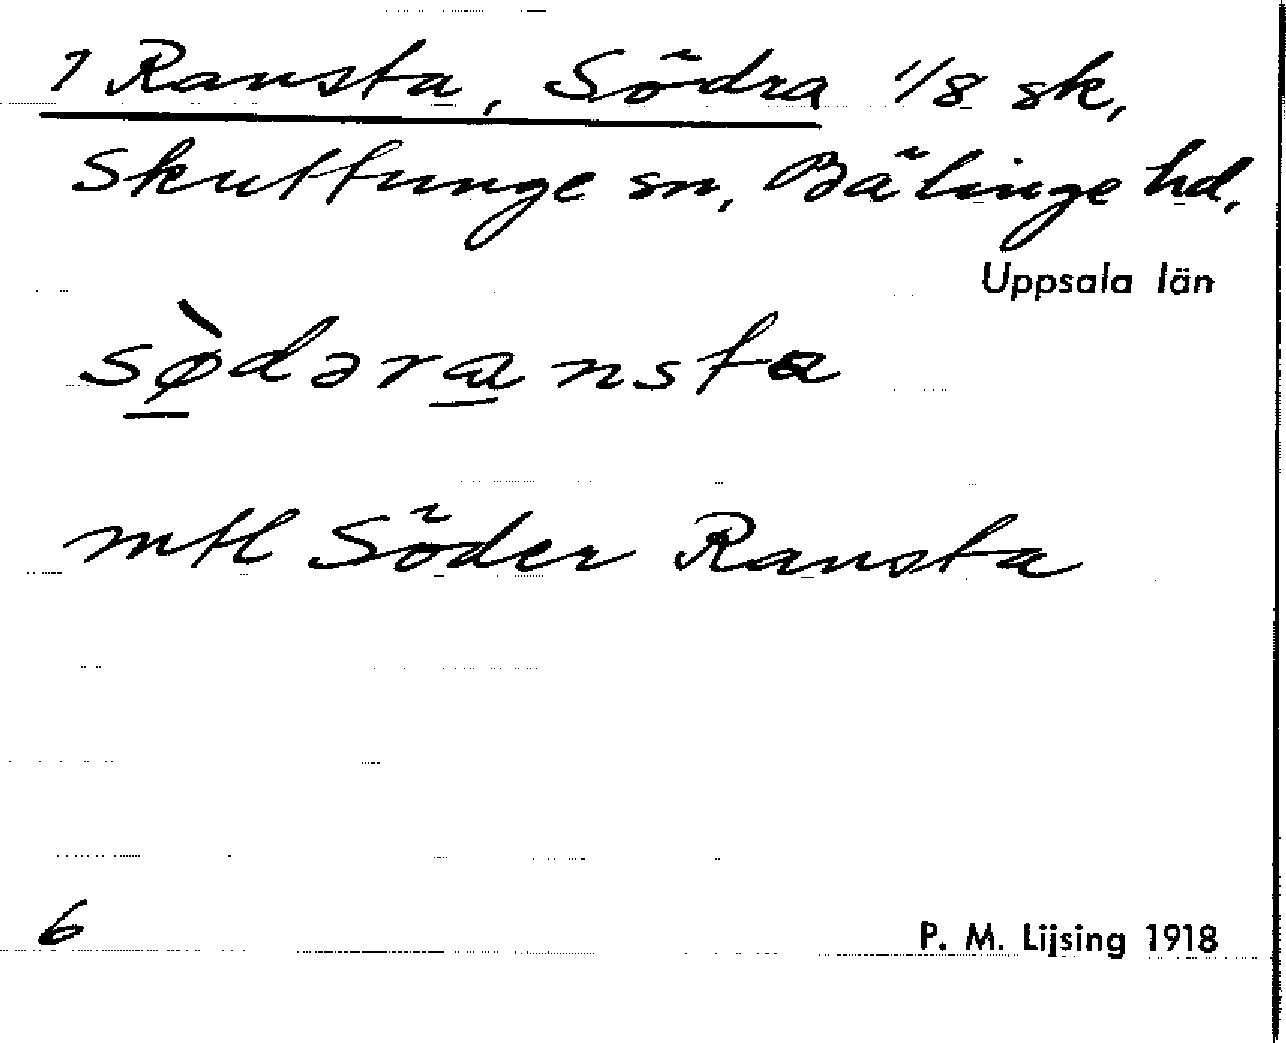 1 Ransta, Södra 1/8 sk,
Skuttunge sn, Bälinge hd,
Uppsala län
sø̀dəransta
mtl Söder Ransta
6
P. M. Lijsing 1918